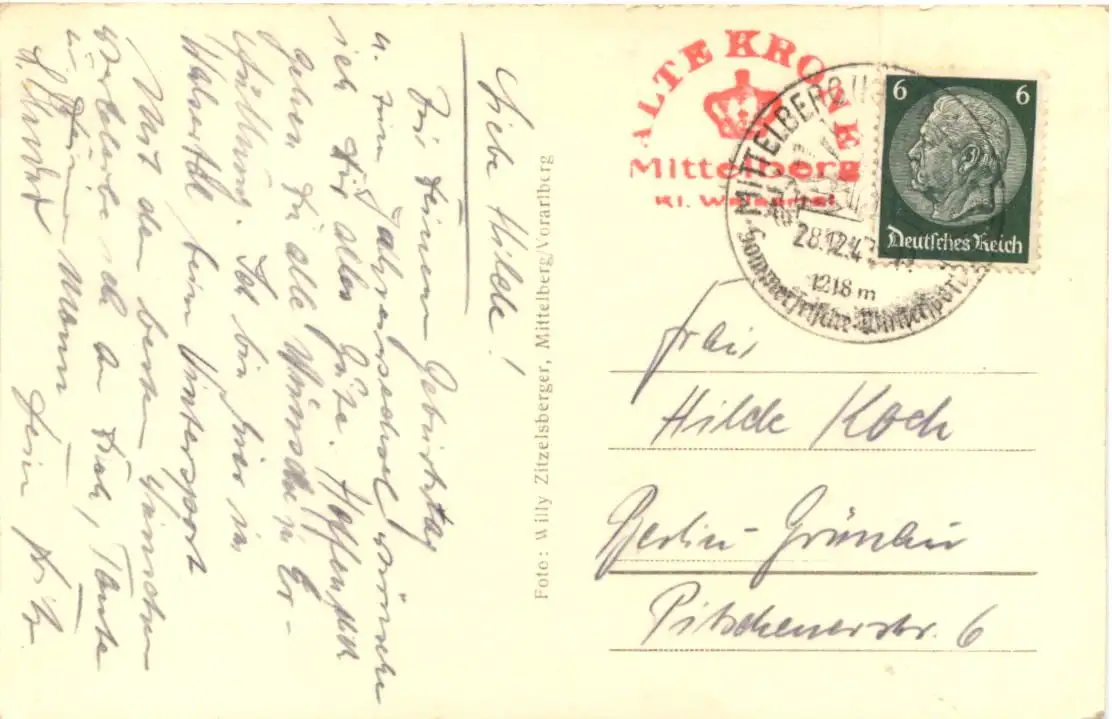 Liebe Hilde!
Zu Deinem Geburtstag
u. zum Jahreswechsel wünsche
ich Dir alles Gute. Hoffentlich
gehen Dir alle Wünsche in Er-
füllung. Ich bin hier im
Walsertal beim Wintersport
Mit den besten Wünschen
verbleibe ich an Dich, Tante
u. Deinen Mann Dein Fritz
Foto: Willy Zitzelsberger, Mittelberg/Vorarlberg
ALTE KRONE
Mittelberg
Kl. Walsertal
MITTELBERG
28.12.4
1218 m
Sommerfrische-Wintersport
6 6
Deutsches Reich
Frau
Hilde Koch
Berlin-Grünau
Pitschenerstr. 6